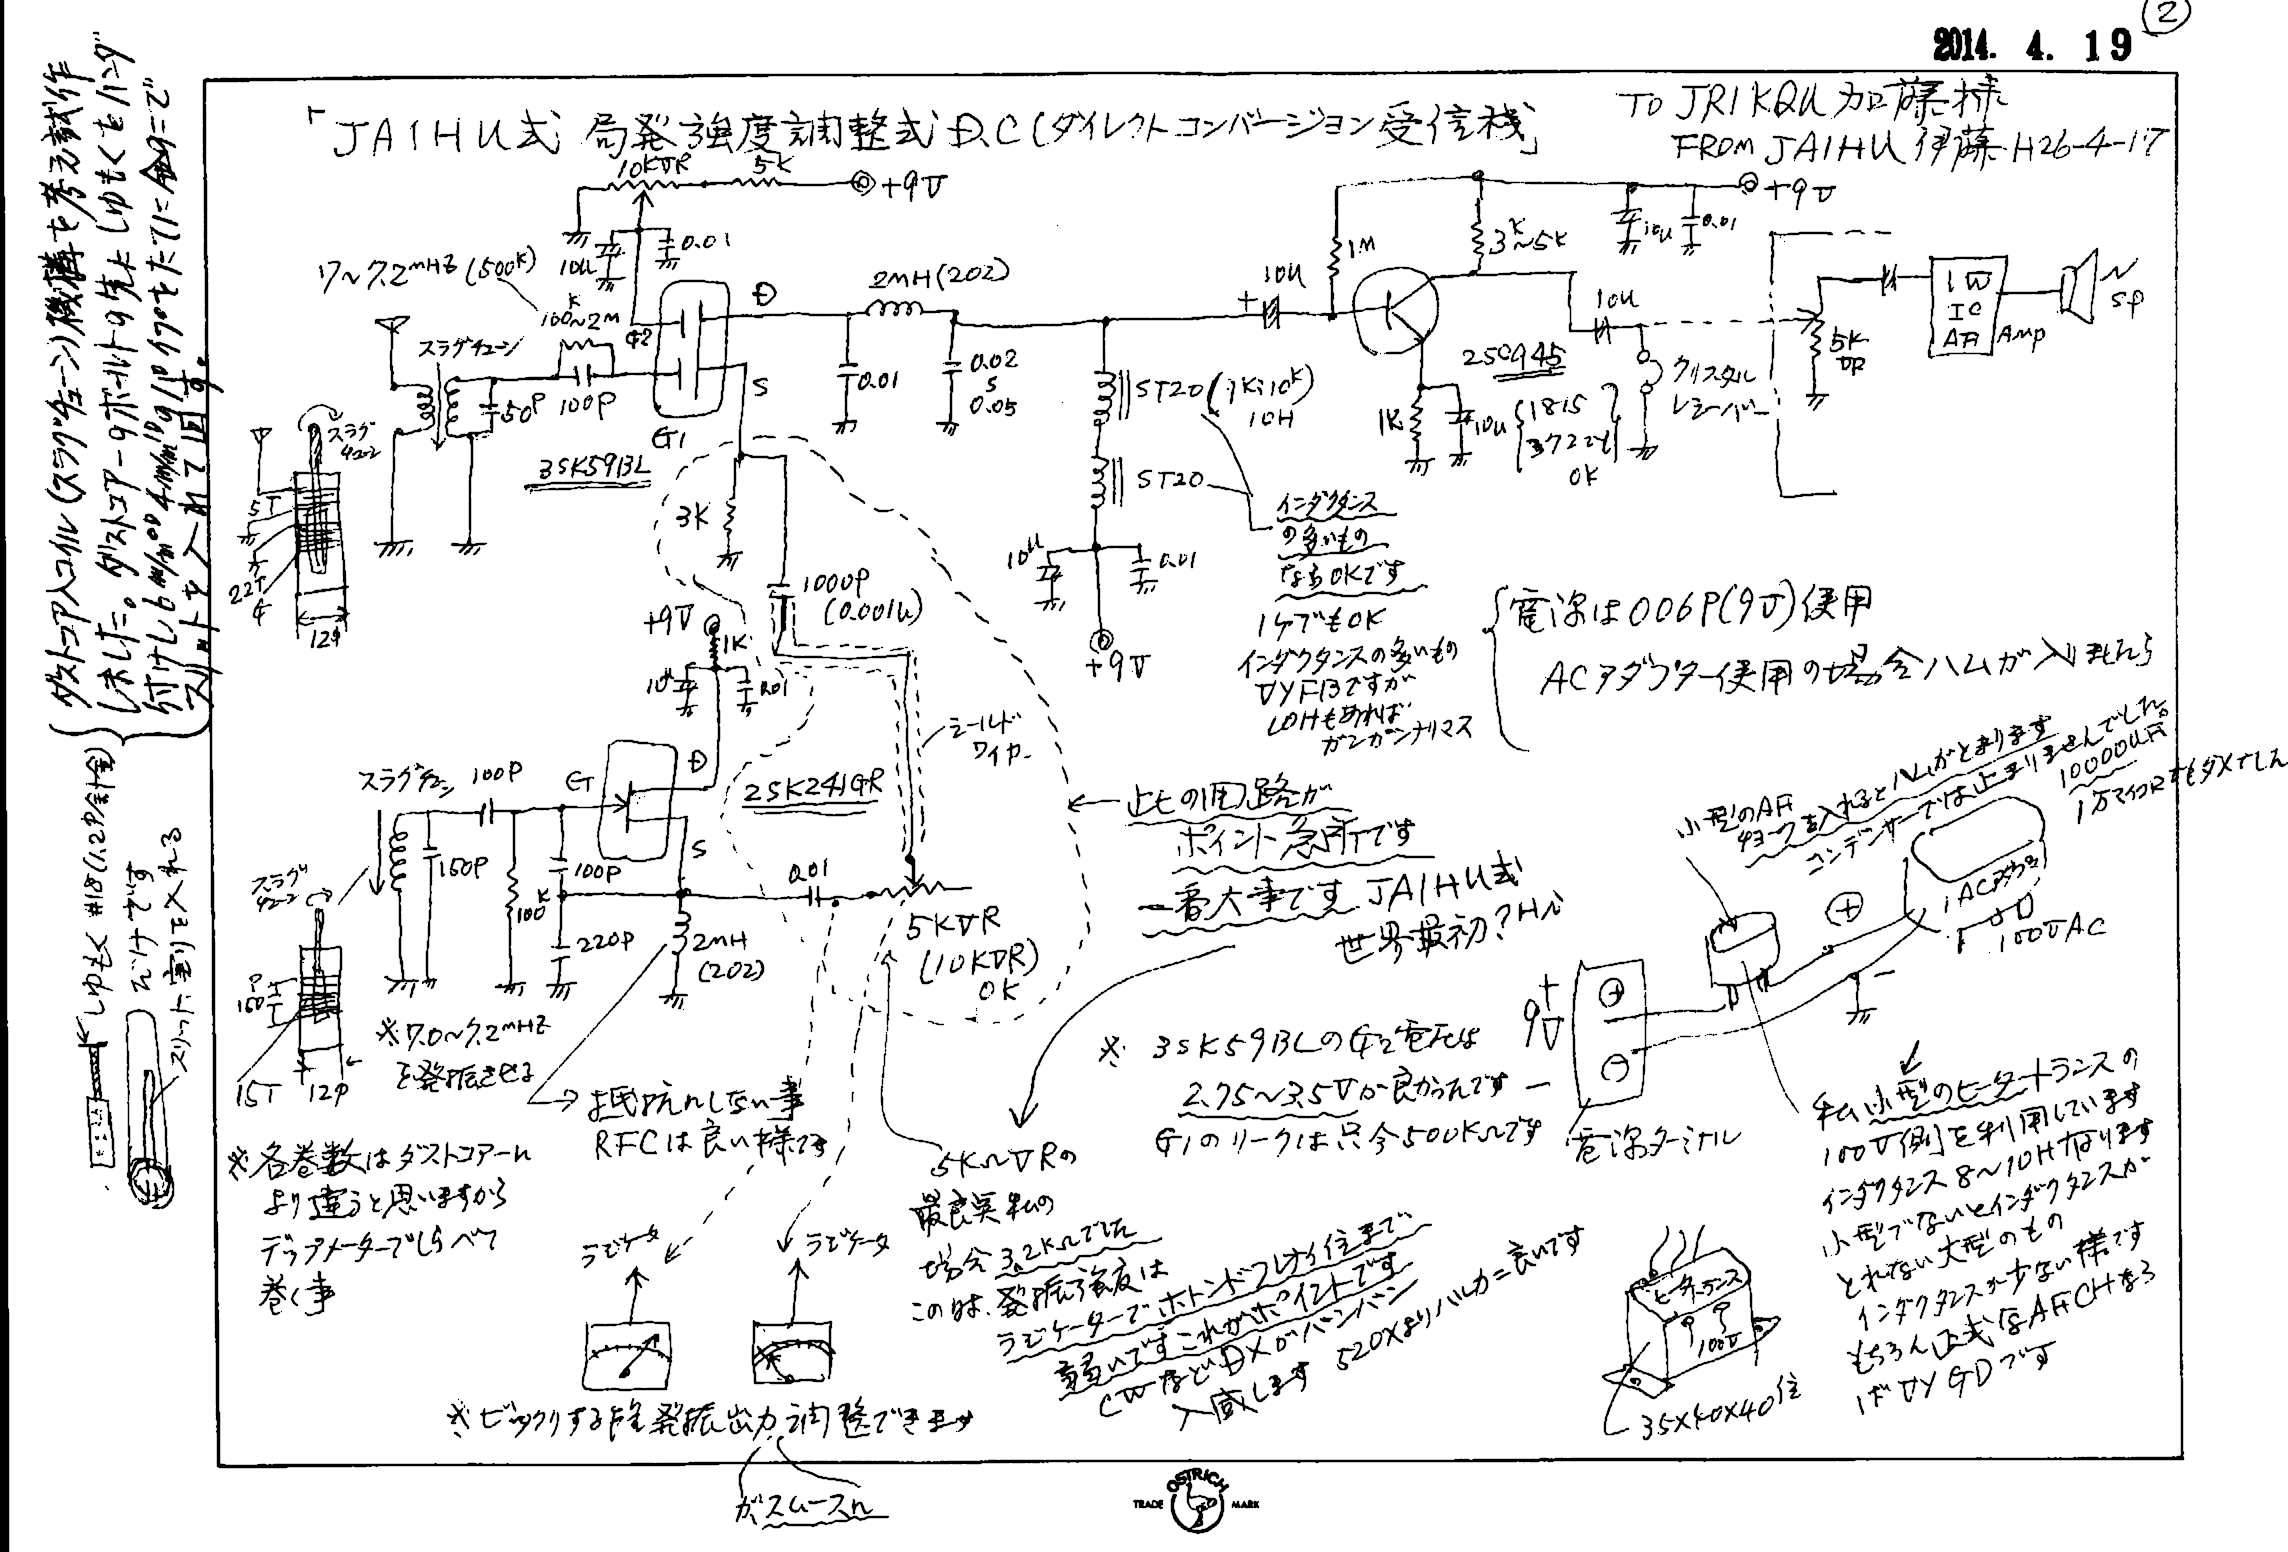 ②
2014. 4. 19
「JA1HU式 局発強度調整式D.C(ダイレクトコンバージョン受信機」
TO JR1KQU 加藤様
FROM JA1HU 伊藤 H26-4-17
10KVR
5K
+9V
10u
0.01
7~7.2MHZ(500K)
100K~2M
スラグチューン
50P
100P
G2
D
S
G1
3SK59BL
2mH(202)
0.01
0.02
S
0.05
10u
1M
3K~5K
+9V
10u
0.01
2SC945
1815
372でも
OK
1K
10u
10u
クリスタル
レシーバー
5K
VR
1W
IC
AF
Amp
SP
ST20(1K:10K)
10H
ST20
10u
0.01
+9V
インダクタンス
の多いもの
ならOKです
1ケでもOK
インダクタンスの多いもの
VYFBですが
10Hもあれば
ガンガンナリマス
スラグ
チューン
5T
22T
12φ
3K
1000P
(0.001u)
シールド
ワイヤー
+9V
1K
10u
0.01
スラグチューン
100P
150P
100K
100P
220P
G
D
S
2SK241GR
2mH
(202)
0.01
5KVR
(10KVR)
OK
スラグ
チューン
150P
15T
12φ
※7.0~7.2MHZ
を発振させる
抵抗にしない事
RFCは良い様です
※各巻数はダストコアーに
より違うと思いますから
デップメーターでしらべて
巻く事
ラジケータ
ラジケータ
※ビックリする程発振出力調整できます
がスムースに
←此の回路が
ポイント急所です
一番大事です JA1HU式
世界最初?Hi
5KΩVRの
最良点 私の
場合 3.2KΩでした
この時、発振強度は
ラジケーターでホトンドフレナイ位まで
弱いです これがポイントです
CWなどDXがバンバン
入感します
520Xよりハルカニ良いです
※ 3SK59BLのG2電圧は
2.75~3.5Vが良かったです
G1のリークは只今500KΩです
電源は006P(9V)使用
ACアダプター使用の場合ハムが入りましたら
小型のAF
チョークを入れるとハムがとまります
コンデンサーでは止まりませんでした。
10000uF
1万マイクロでもダメでした
ACアダプター
100VAC
+
9V
電源ターミナル
私 小型のヒータートランスの
100V側を利用しています
インダクタンス8~10Hなります
小型でないとインダクタンスが
とれない 大型のもの
インダクタンスが少ない様です
もちろん正式なAFCHなら
ばVYGDです
ヒータートランス
100V
35X40X40位
ダストコア入コイル(スラグチューン)機構を考え試作
しました。ダストコアーのボルトの先に しゅもくをハンダ
スリットを入れて回す。
しゅもく #18(1.2φ針金)
スリット 割りを入れる
OSTRICH
TRADE MARK